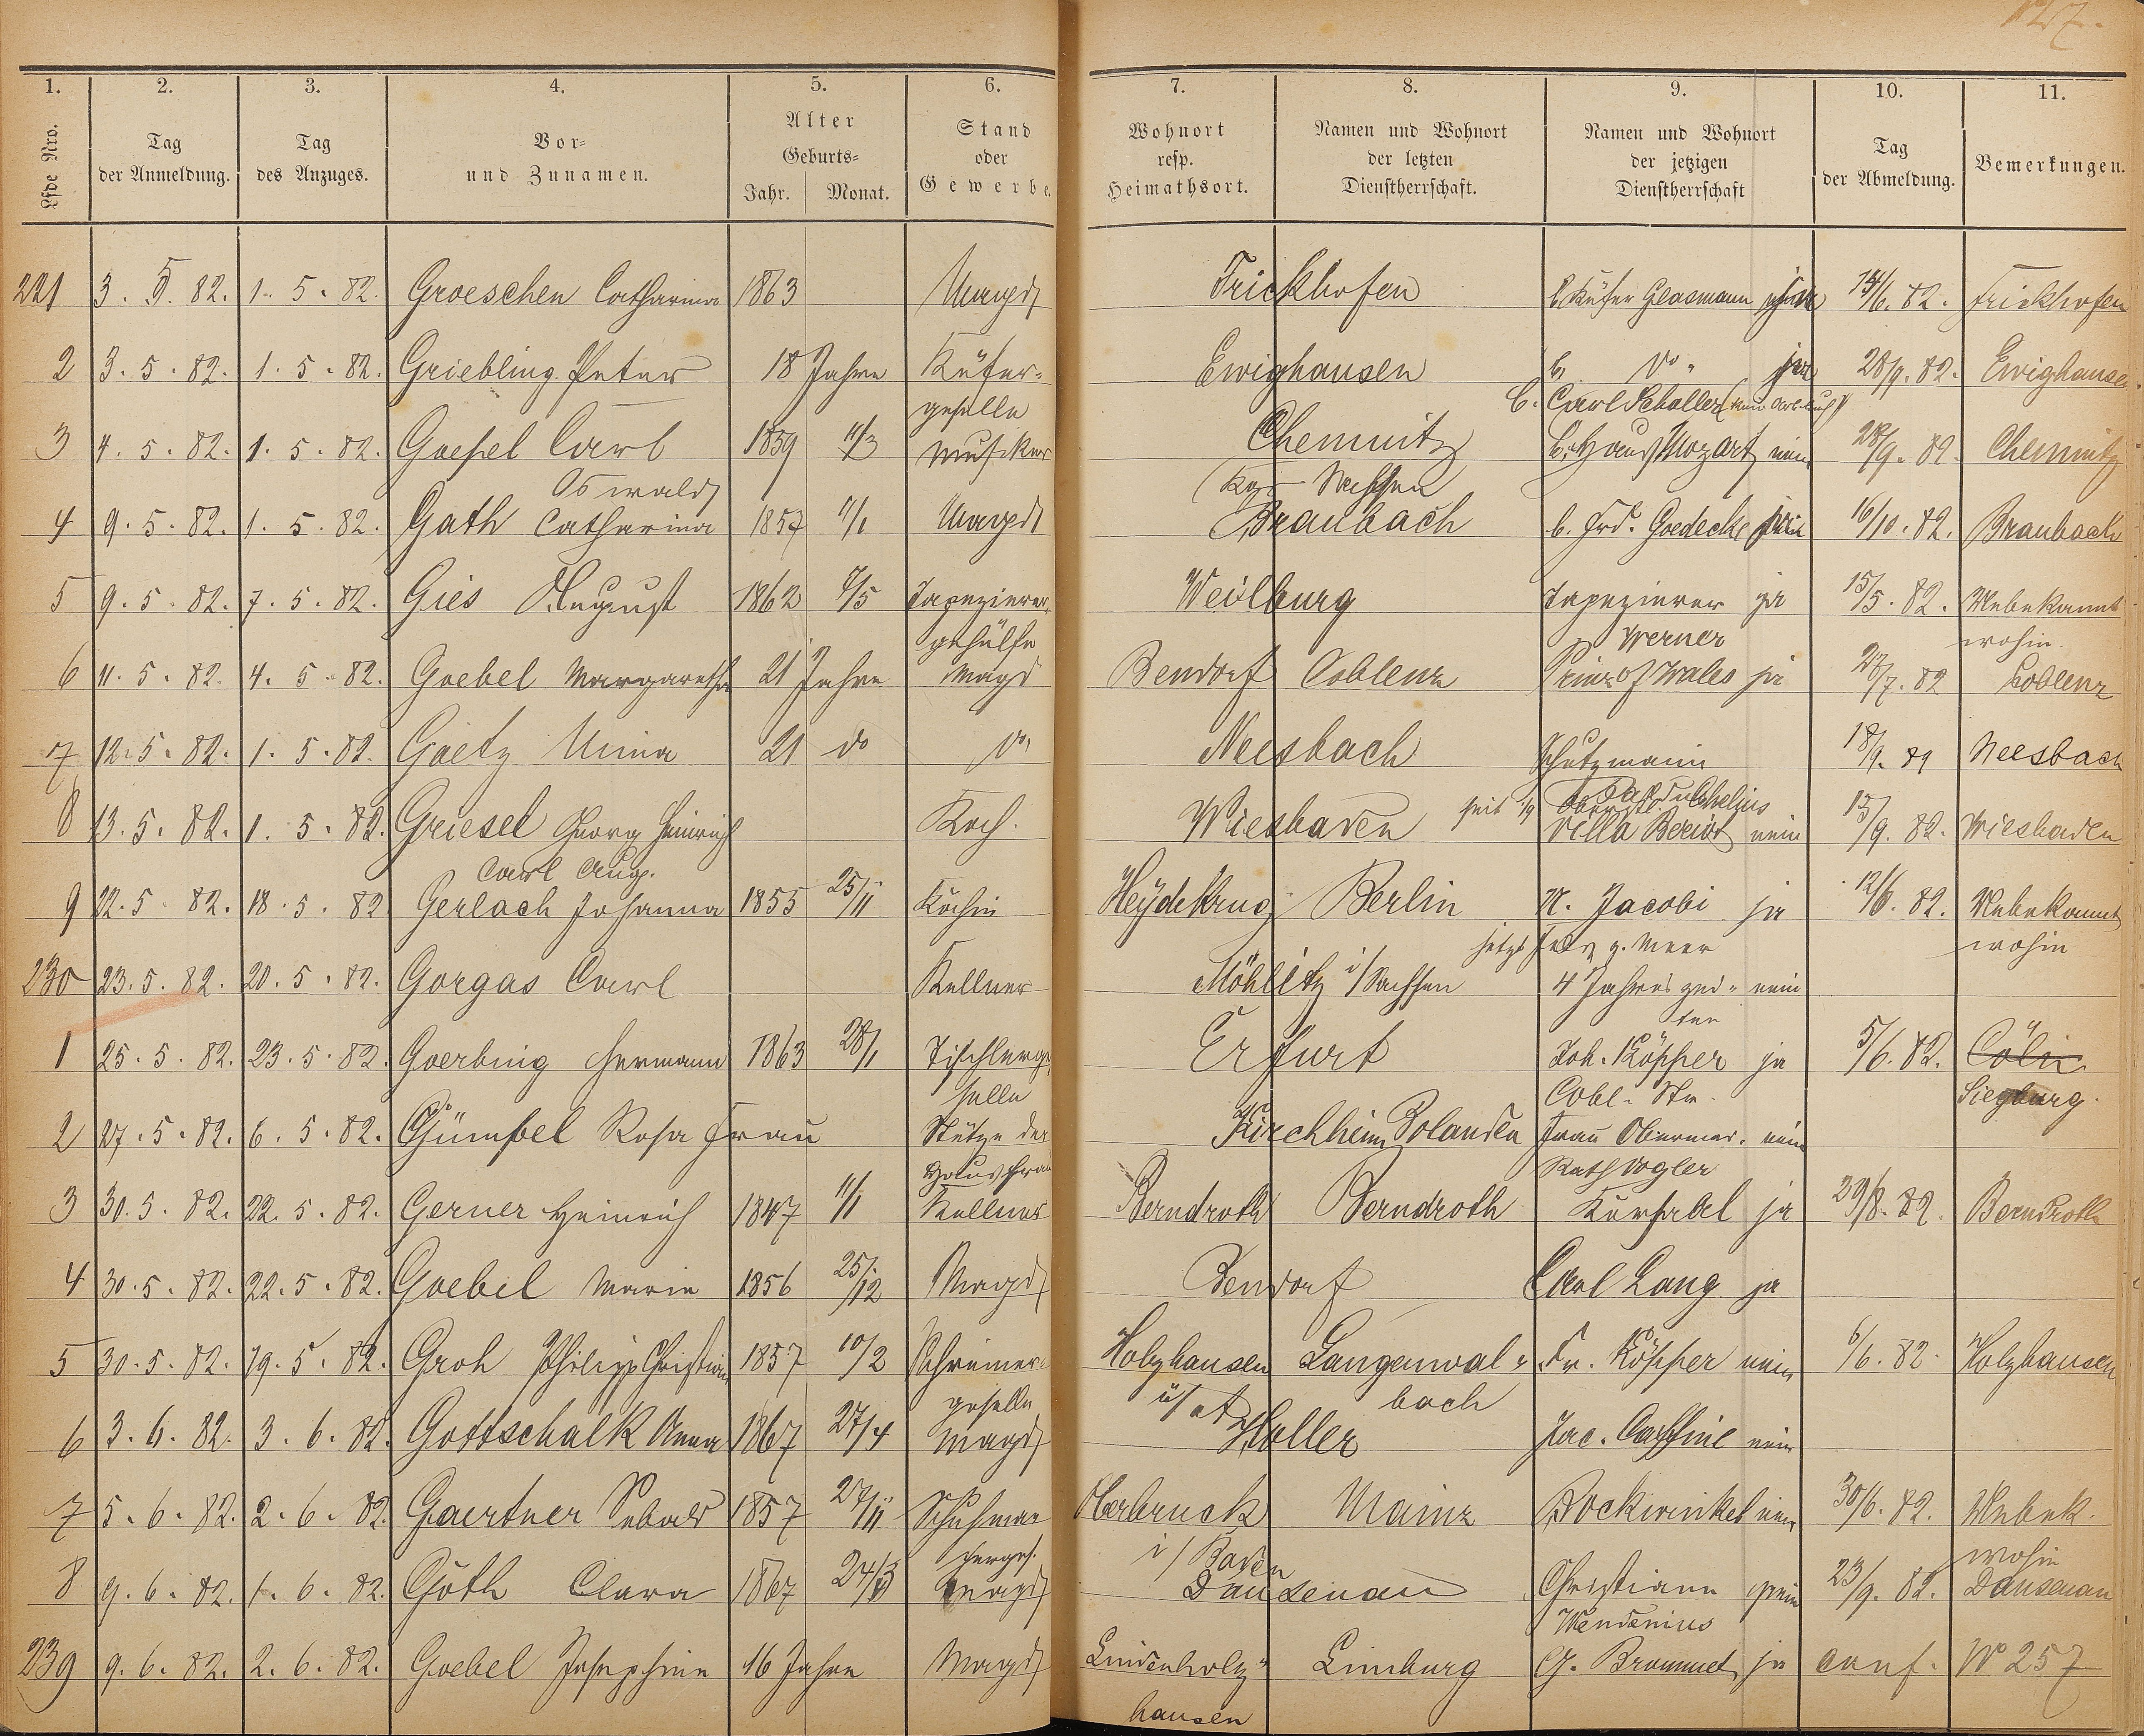 127.
1. 2. 3. 4. 5. 6. 7. 8. 9. 10. 11.
Lfde Nro. Tag der Anmeldung. Tag des Anzuges. Vor- und Zunamen. Alter Geburts- Jahr. Monat. Stand oder Gewerbe. Wohnort resp. Heimathsort. Namen und Wohnort der letzten Dienstherrschaft. Namen und Wohnort der jetzigen Dienstherrschaft Tag der Abmeldung. Bemerkungen.
221 3. 5. 82. 1. 5. 82. Groeschen Catharina 1863 Magd Frickhofen b. Küfer Glasmann 14/6. 82. Frickhofen
2 3. 5. 82. 1. 5. 82. Griebling Peter 18 Jahre Küfer- Ewighausen b. do. 28/9. 82. Ewighausen
geselle b. Carl Schaller
3 4. 5. 82. 1. 5. 82. Goesel Carl 1859 11/3 Musiker Chemnitz b. Haus Mozart nein 28/9. 82. Chemnitz
Oswald Kgr Sachsen
4 9. 5. 82. 1. 5. 82. Gath Catharina 1857 11/1 Magd Braubach b. Frd. Goedecke 16/10. 82. Braubach
5 9. 5. 82. 7. 5. 82. Gies August 1862 Tapezierer- Weilburg Tapezierer ja 15/5. 82. Unbekannt
gehülfe Werner wohin
6 11. 5. 82. 4. 5. 82. Goebel Margaretha 21 Jahre Magd Bendorf Coblenz Prinz of Wales ja 27/7. 82 Coblenz
7 12. 5. 82. 1. 5. 82. Goetz Mina 21 do do. Neesbach Schutzmann 18/9. 82 Neesbach
8 13. 5. 82. 1. 5. 82. Griesel Georg Heinrich Koch. Wiesbaden seit 1/9 Villa Beriot nein 15/9. 82. Wiesbaden
Carl Aug.
9 22. 5. 82. 18. 5. 82 Gerlach Johanna 1855 25/11 Köchin Heydekrug Berlin M. Jacobi ja 12/6. 82. Unbekannt
jetzt wohin
230 23. 5. 82. 20. 5. 82. Gorgas Carl Kellner Möhlitz i/Sachsen 4 Jahres zei- nein
ten
1 25. 5. 82. 23. 5. 82. Goerbing Hermann 1863 28/1 Tischlerge- Erfurt Joh. Köpper ja 5/6. 82. Cöln
selle Cobl. Str. Siegburg.
2 27. 5. 82. 6. 5. 82. Gümbel Rosa Frau Stütze der Kirchheim Bolanden Frau Obermed. nein
Hausfrau Rath Vogler
3 30. 5. 82. 22. 5. 82. Gerner Heinrich 1847 11/1 Kellner Berndroth Berndroth Kursaal ja 29/8. 82. Berndroth
4 30. 5. 82. 22. 5. 82. Goebel Marie 1856 25/12 Magd Bendorf Carl Lang ja
5 30. 5. 82. 19. 5. 82. Groh Philipp Christian 1857 10/2 Schreiner- Holzhausen Langenwal- Fr. Köpper nein 6/6. 82. Holzhausen
geselle bach
6 3. 6. 82. 3. 6. 82. Gottschalk Anna 1867 27/4 Magd Holler Jac. Caffine nein
7 5. 6. 82. 2. 6. 82. Gaertner Sebald 1857 27/11 Schuhma- Oberbruck Mainz Bockwinkel nein 30/6. 82. Unbek.
cherges. i/Baden wohin
8 9. 6. 82. 1. 6. 82. Göth Clara 1867 24/3 Magd Dausenau Christiann nein 23/9. 82. Dausenau
Wendenius
239 9. 6. 82. 2. 6. 82. Goebel Josephine 16 Jahre Magd Lindenholz- Limburg G. Brommet ja conf. No 257
hausen